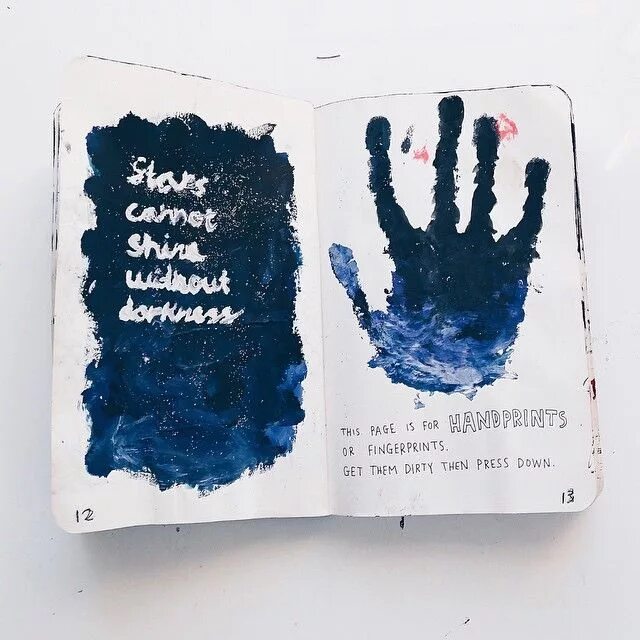 Stars
cannot
shine
without
darkness
THIS PAGE IS FOR HANDPRINTS
OR FINGERPRINTS.
GET THEM DIRTY THEN PRESS DOWN.
12
13